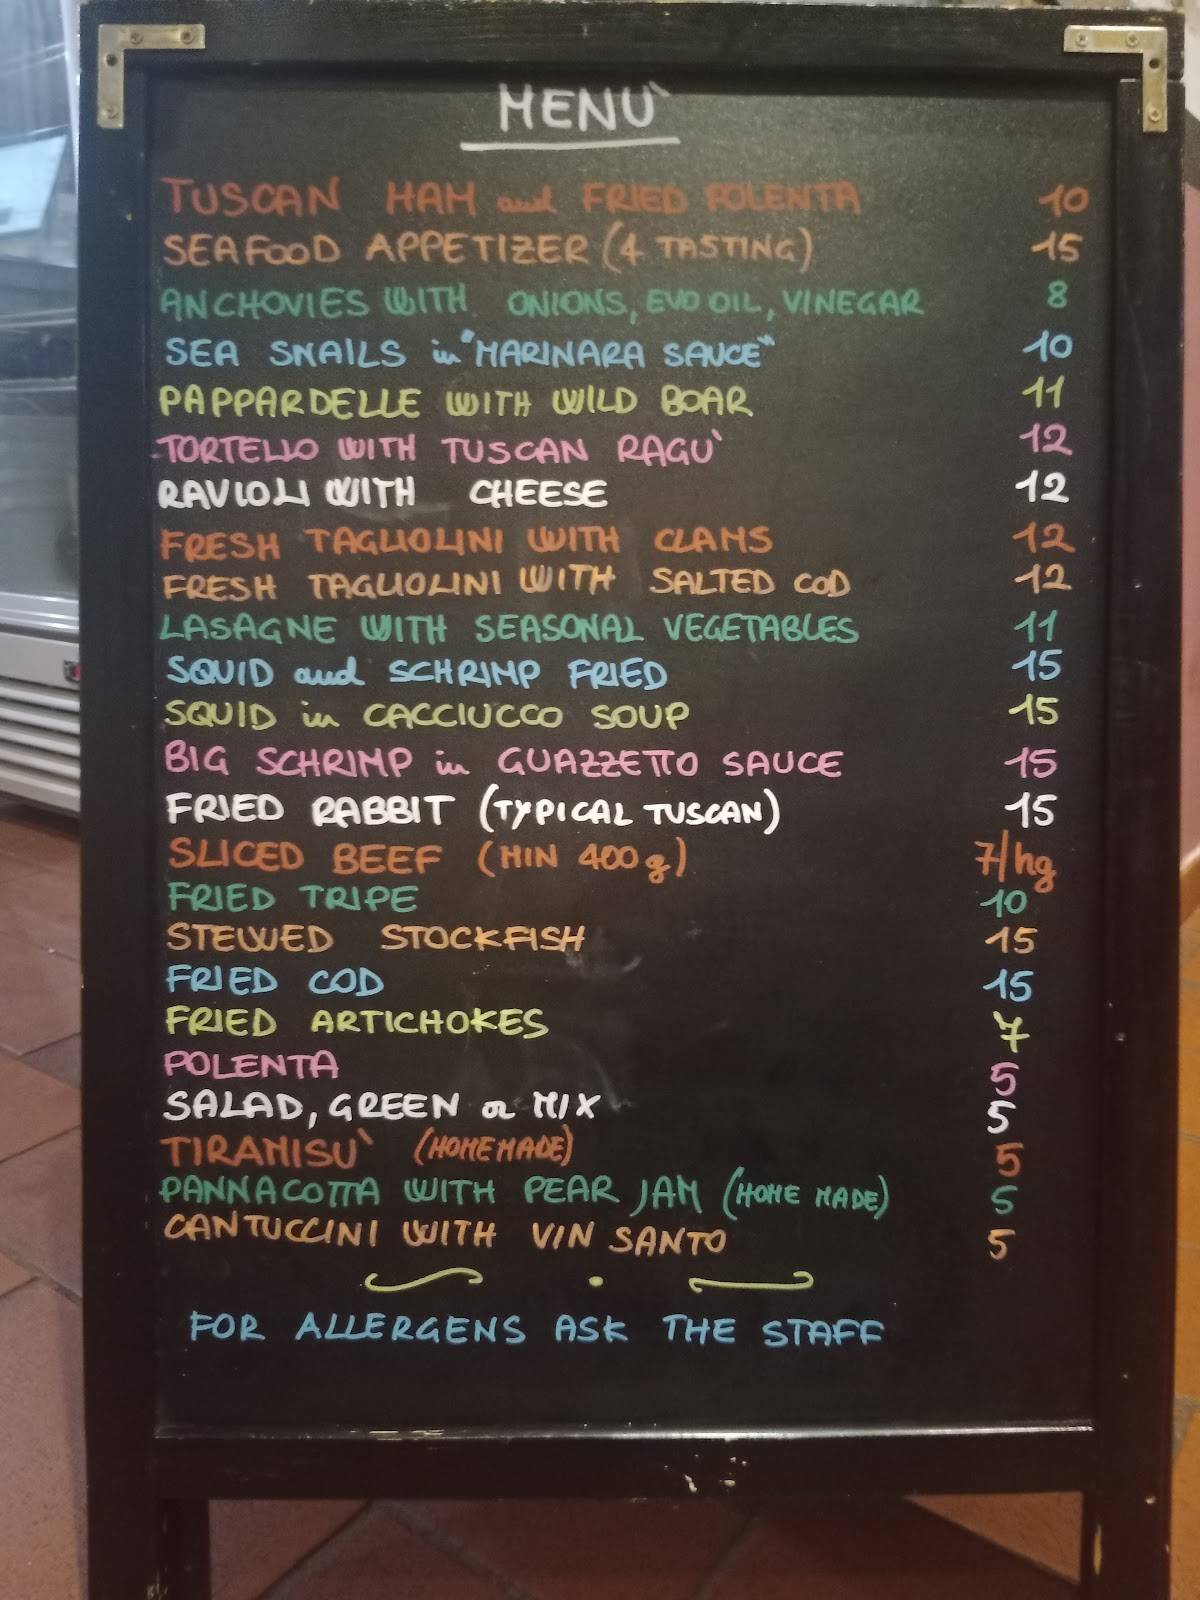 MENU`
TUSCAN HAM and FRIED POLENTA 10
SEAFOOD APPETIZER (4 TASTING) 15
ANCHOVIES WITH ONIONS, EVO OIL, VINEGAR 8
SEA SNAILS in "MARINARA SAUCE" 10
PAPPARDELLE WITH WILD BOAR 11
TORTELLO WITH TUSCAN RAGU` 12
RAVIOLI WITH CHEESE 12
FRESH TAGLIOLINI WITH CLAMS 12
FRESH TAGLIOLINI WITH SALTED COD 12
LASAGNE WITH SEASONAL VEGETABLES 11
SQUID and SCHRIMP FRIED 15
SQUID in CACCIUCCO SOUP 15
BIG SCHRIMP in GUAZZETTO SAUCE 15
FRIED RABBIT (TYPICAL TUSCAN) 15
SLICED BEEF (MIN 400 g) 7/hg
FRIED TRIPE 10
STEWED STOCKFISH 15
FRIED COD 15
FRIED ARTICHOKES 7
POLENTA 5
SALAD, GREEN or MIX 5
TIRAMISU` (HOMEMADE) 5
PANNACOTTA WITH PEAR JAM (HOME MADE) 5
CANTUCCINI WITH VIN SANTO 5
FOR ALLERGENS ASK THE STAFF